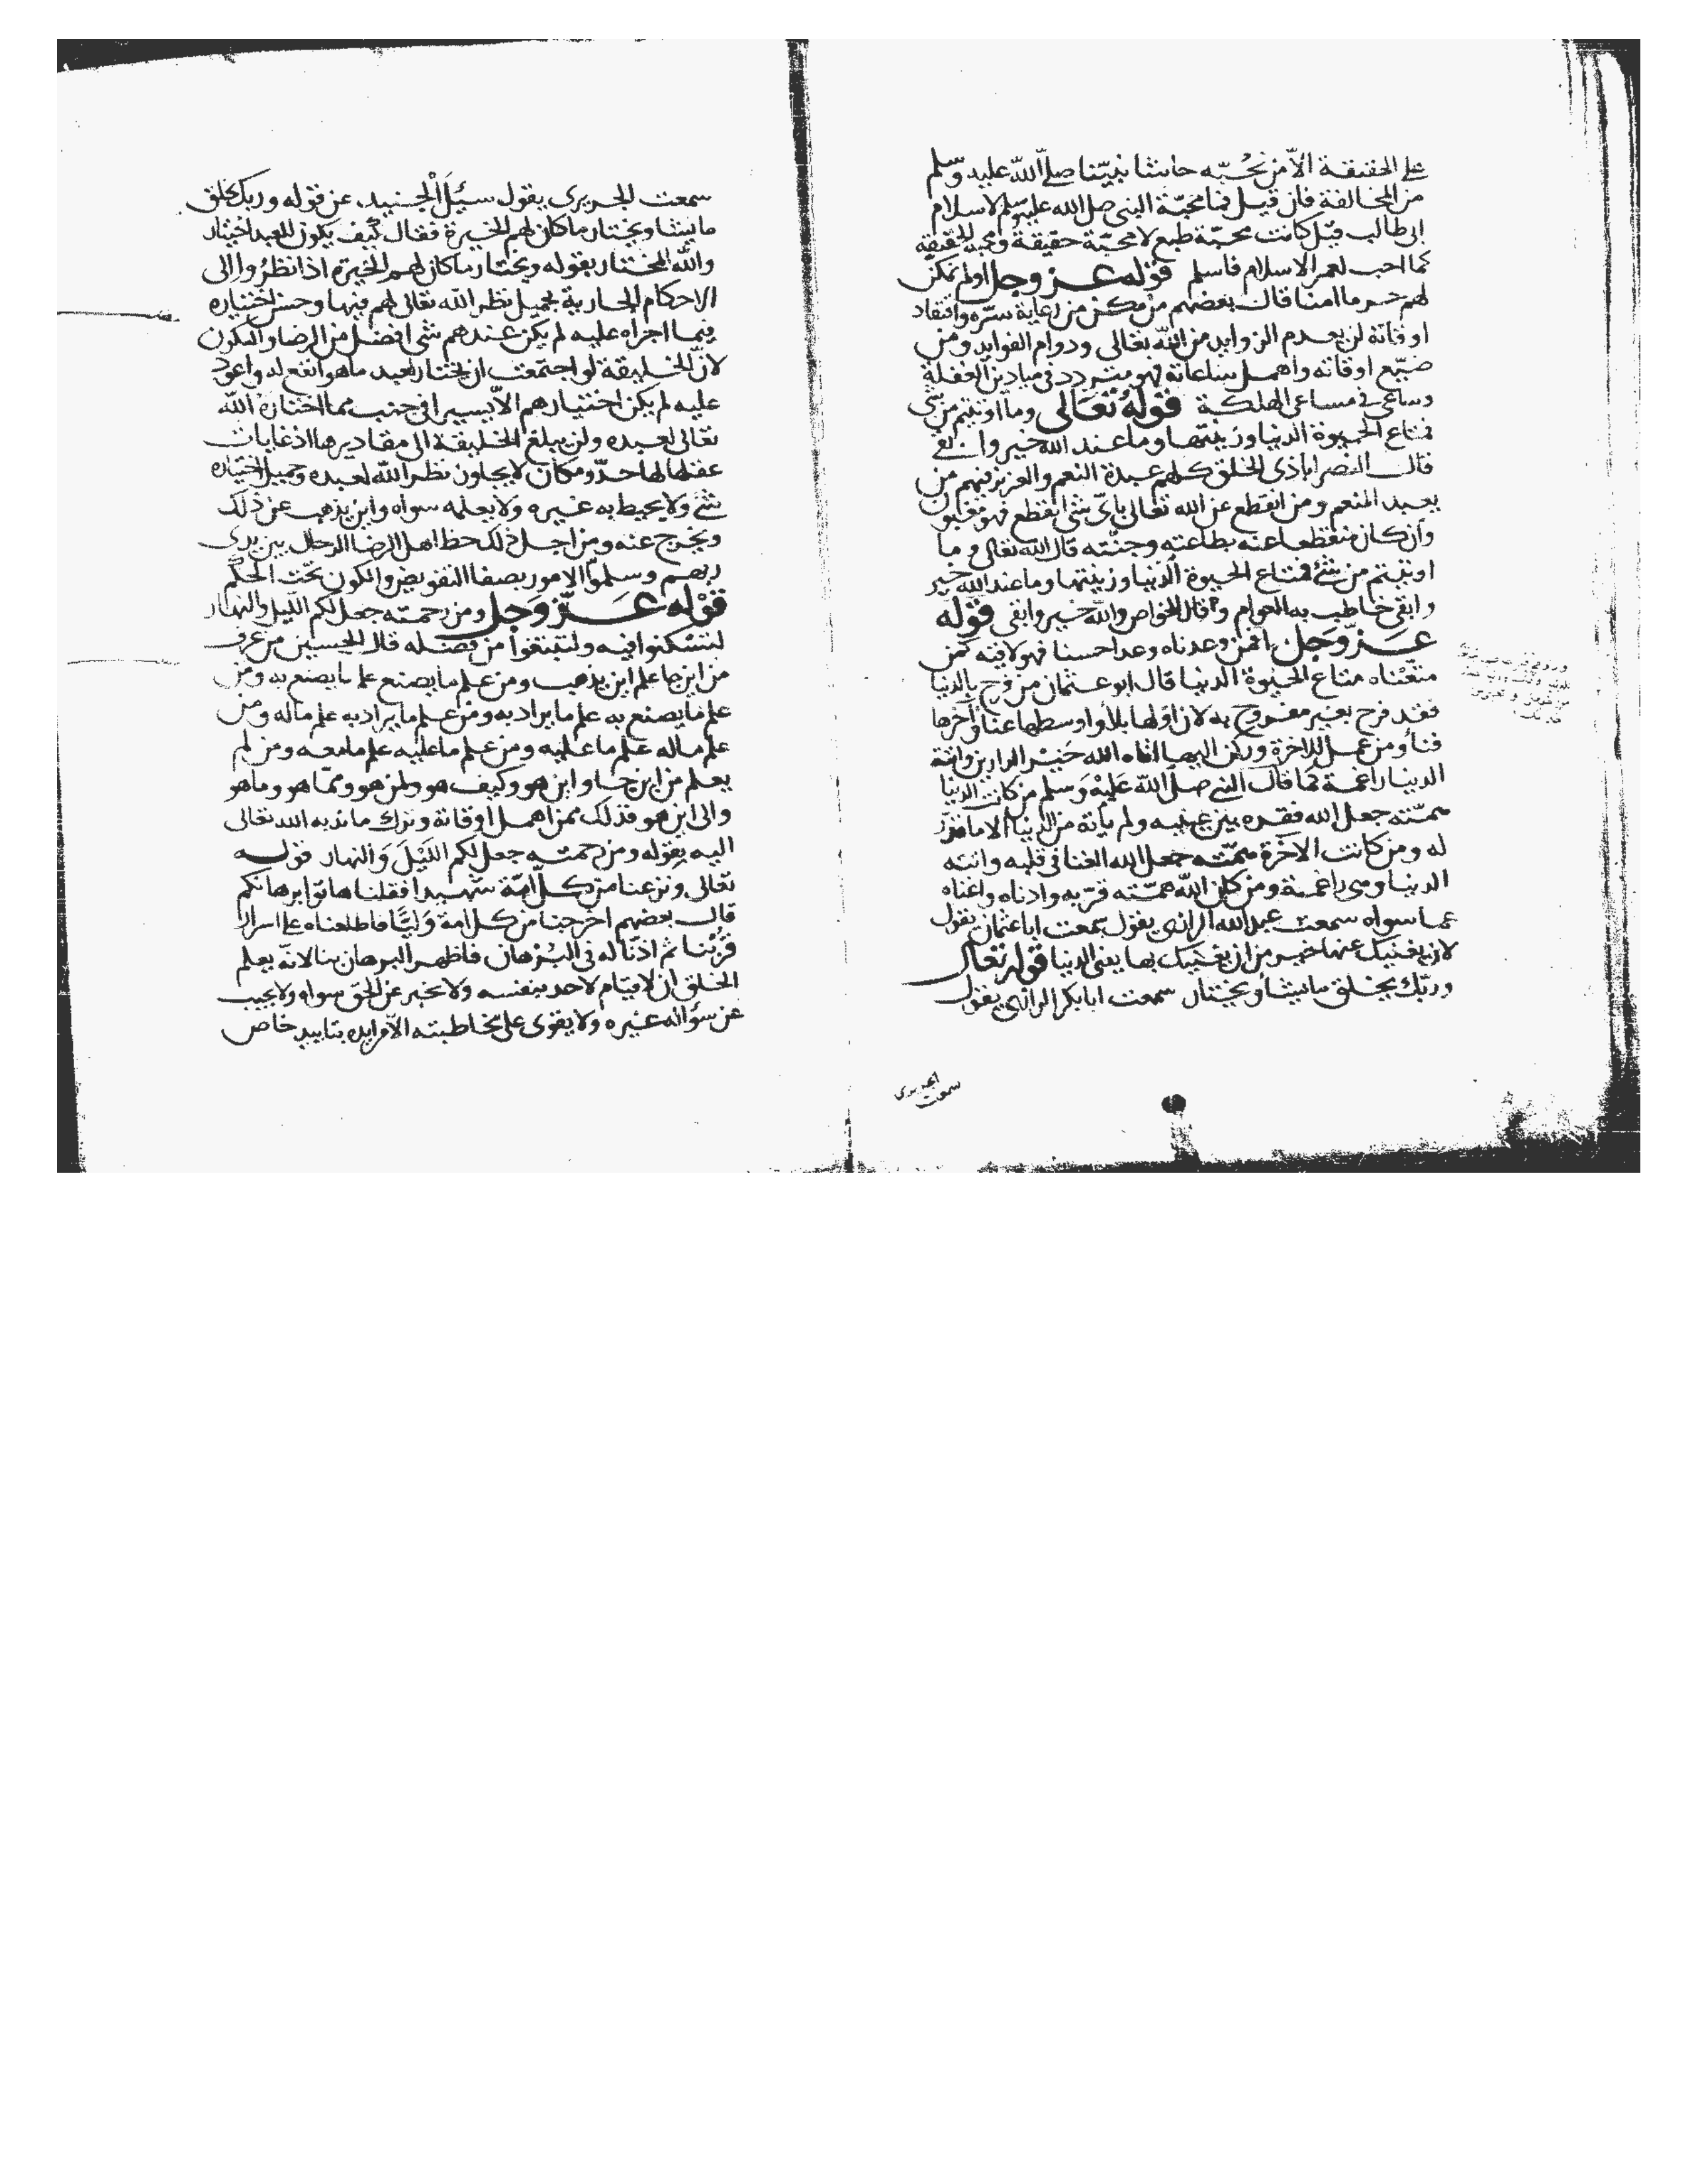 على الحقيقة الا من نحُبّه حاشا نبيّنا صلى الله عليه وسلم
من المخالفة فان قيل فما محبّة النبي صلى الله عليه وسلم لاسلام
ابى طالب قيل كانت محبّة طبع لا محبّة حقيقة ومحبة الحقيقة
كما احب لعمر الاسلام فاسلم قوله عز وجل اولم نمكن
لهم حرما امنا قال بعضهم من مكن من رعاية سرّه وافتقاد
اوقاته لن يعدم الزوايد من الله تعالى ودوام الفوايد ومن
ضيّع اوقاته واهمل ساعاته فهو متردد في ميادين الغفلة
وساعى في مساعى الهلكة قوله تعالى وما اوتيتم من شى
فمتاع الحيوة الدنيا وزينتها وما عند الله خير وابقى
قال النصراباذى الخلق كلهم عبدة النعم والعزيز فيهم من
يعبد المنعم ومن انقطع عن الله تعالى باى شى انقطع فهو مغبون
وان كان منقطعا عنه بطاعته وجنّته قال الله تعالى وما
اوتيتم من شئ فمتاع الحيوة الدنيا وزينتها وما عند الله خير
وابقى خاطب به العوام وقال للخواص والله خير وابقى قوله
عز وجل افمن وعدناه وعدا حسنا فهو لاقيه كمن
متعّناه متاع الحيوة الدنيا قال ابو عثمان من فرح بالدنيا
فقد فرح بغير مفروح به لان اولها بلاء واوسطها عناء واخرها
فناء ومن عمل للاخرة وركن اليها اتاه الله خير الدارين واتته
الدنيا راغمة كما قال النبي صلى الله عليه وسلم من كانت الدنيا
همّته جعل الله فقره بين عينيه ولم يأته من الدنيا الا ما قدّر
له ومن كانت الاخرة همّته جعل الله الغنا في قلبه واتته
الدنيا وهى راغمة ومن كان الله همّته قرّبه وادناه واغناه
عما سواه سمعت عبد الله الرازى يقول سمعت ابا عثمان يقول
لان يغنيك عنها خير من ان يغنيك بها يعنى الدنيا قوله تعالى
وربّك يخلق ما يشاء ويختار سمعت ابا بكر الرازى يقول
سمعت الجريرى
سمعت الجريرى يقول سئل الجنيد عن قوله وربك يخلق
ما يشا ويختار ما كان لهم الخيرة فقال كيف يكون للعبد اختيار
والله المختار بقوله ويختار ما كان لهم الخيرة اذا نظروا الى
الاحكام الجارية بجميل نظر الله تعالى لهم فيها وحسن اختياره
فيما اجراه عليه لم يكن عندهم شى افضل من الرضا والسكون
لان الخليقة لو اجتمعت ان يختار لعبد ما هو انفع له واعود
عليه لم يكن اختيارهم الا يسيرا في جنب مما اختاره الله
تعالى لعبده ولن يبلغ الخليقة الى مقاديرها اذ غايات
عقلها لها حدّ ومكان لا يجاوز نظر الله لعبده وجميل اختياره
شئ ولا يحيط به غيره ولا يعلمه سواه واين يذهب عن ذلك
ويخرج عنه ومن اجل ذلك حظ اهل الرضا الرحال بين يدى
ربهم وسلموا الامور بصفا التفويض والسكون تحت الحكم
قوله عز وجل ومن رحمته جعل لكم الليل والنهار
لتسكنوا فيه ولتبتغوا من فضله قال الحسين من عرف
من اين جا علم اين يذهب ومن علم ما يصنع علم ما يصنع به ومن
علم ما يصنع به علم ما يراد به ومن علم ما يراد به علم ما له ومن
علم ما له علم ما عليه ومن علم ما عليه علم ما معه ومن لم
يعلم من اين جا واين هو وكيف هو ولمن هو ومما هو وما هو
والى اين هو فذلك ممن اهمل اوقاته وترك ما ندبه الله تعالى
اليه بقوله ومن رحمته جعل لكم الليل والنهار قوله
تعالى ونزعنا من كل امّة شهيدا فقلنا هاتوا برهانكم
قال بعضهم اخرجنا من كل امة وليّا فاطلعناه على اسرار
قربنا ثم اذنّا له في البرهان فاظهر البرهان بنا لانه يعلم
الخلق ان لا قيام لاحد بنفسه ولا يخبر عن الحق سواه ولا يجيب
عن سؤاله غيره ولا يقوى على مخاطبته الا من ايده بتاييد خاص